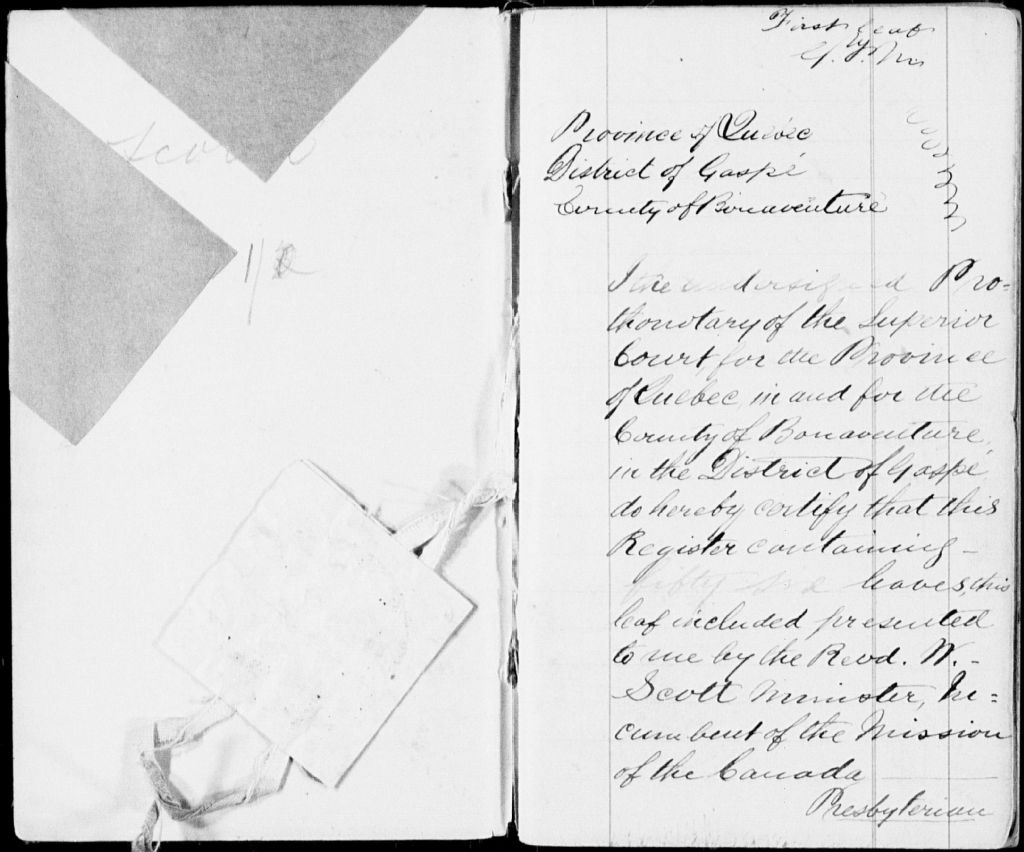 First leaf
Province of Quebec
District of Gaspé
County of Bonaventure
I the undersigned Pro=
thonotary of the Superior
Court, for the Province
of Quebec, in and for the
County of Bonaventure,
in the District of Gaspé,
do hereby certify that this
Register containing –
fifty six leaves, this
leaf included presented
to me by the Revd. W. –
Scott Minister, In=
cumbent of the Mission
of the Canada
Presbyterian